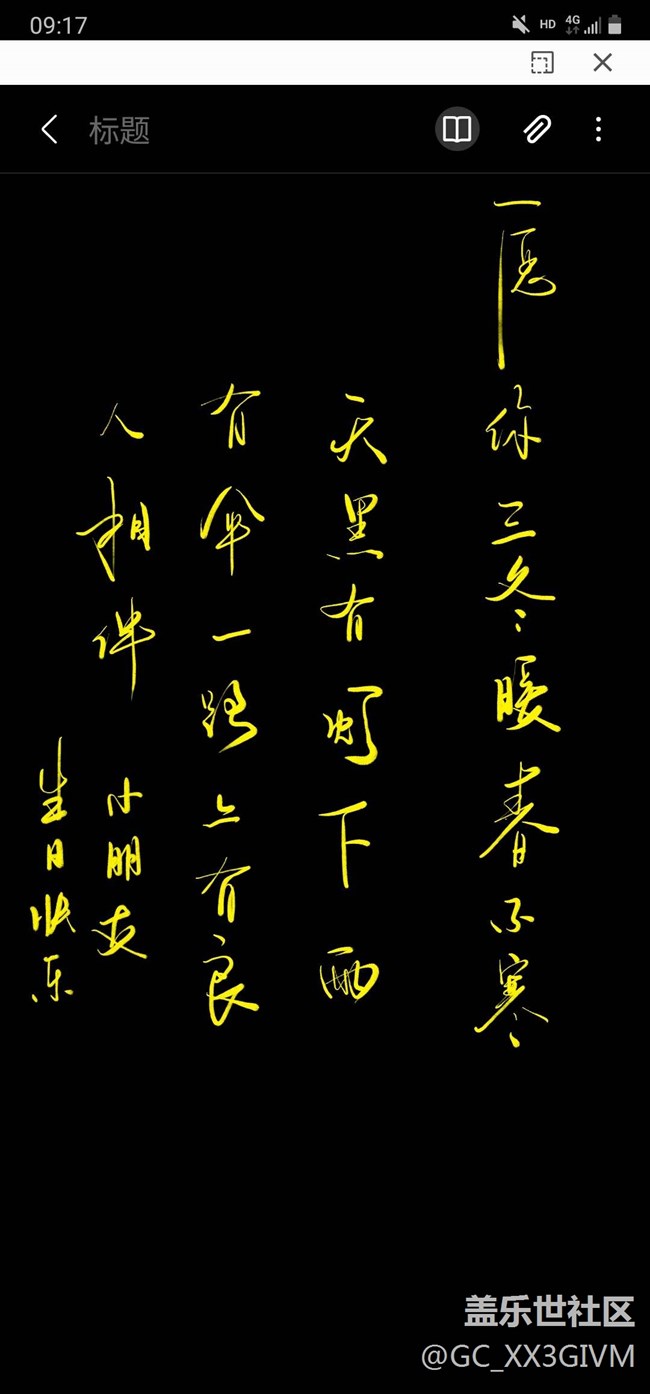 09:17
HD 4G
标题
一愿你三冬暖春不寒
天黑有灯下雨
有伞一路上有良
人相伴
小朋友
生日快乐
盖乐世社区
@GC_XX3GIVM